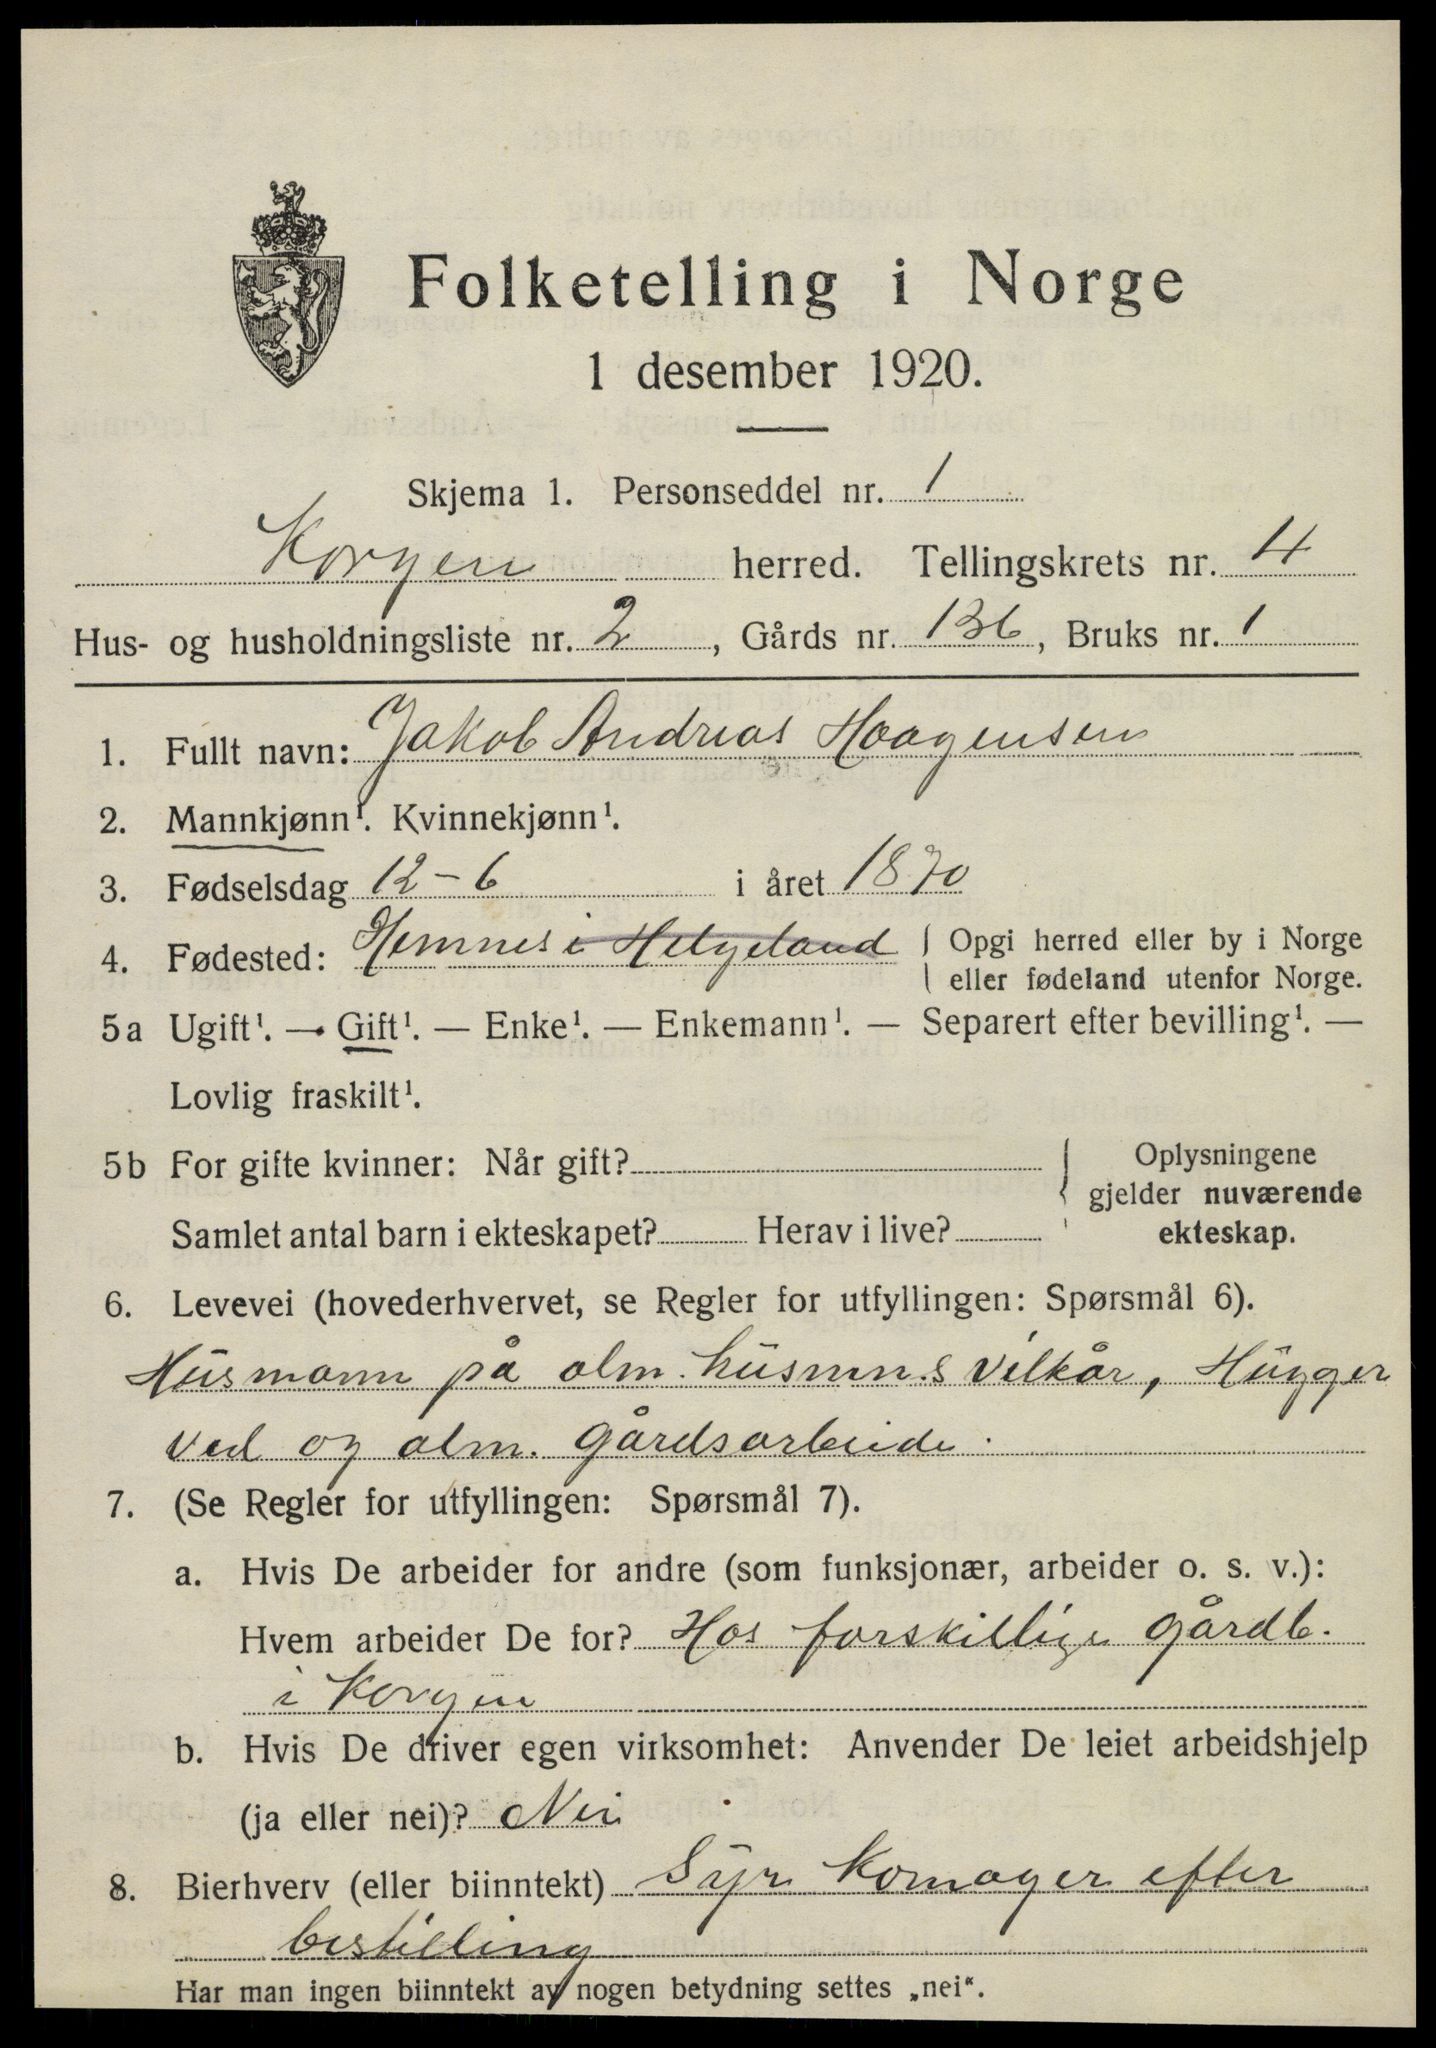 Folketelling i Norge
1 desember 1920.
Skjema 1. Personseddel nr. 1
Korgen herred. Tellingskrets nr. 4
Hus- og husholdningsliste nr. 2, Gårds nr. 136, Bruks nr. 1
1. Fullt navn: Jakob Andreas Haagensen
2. Mannkjønn¹. Kvinnekjønn¹.
3. Fødselsdag 12-6 i året 1870
4. Fødested: Hemnes i Helgeland { Opgi herred eller by i Norge
eller fødeland utenfor Norge.
5a Ugift¹. — Gift¹. — Enke¹. — Enkemann¹. — Separert efter bevilling¹. —
Lovlig fraskilt¹.
5b For gifte kvinner: Når gift?
Samlet antal barn i ekteskapet? Herav i live?
Oplysningene
gjelder nuværende
ekteskap.
6. Levevei (hovederhvervet, se Regler for utfyllingen: Spørsmål 6).
Husmann på alm. husmn.s vilkår, Hugger
ved og alm. gårdsarbeide.
7. (Se Regler for utfyllingen: Spørsmål 7).
a. Hvis De arbeider for andre (som funksjonær, arbeider o. s. v.):
Hvem arbeider De for? Hos forskillige gårdb.
i Korgen
b. Hvis De driver egen virksomhet: Anvender De leiet arbeidshjelp
(ja eller nei)? Nei
8. Bierhverv (eller biinntekt) Syr Komager efter
bestilling
Har man ingen biinntekt av nogen betydning settes „nei".